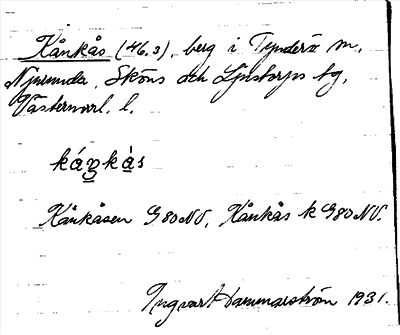 Kånkås (46.3), berg i Tynderö sn,
Njurunda, Sköns och Ljustorps tg,
Västernorrl. l.
káŋkàs
Kånkåsen G80NV, Kånkås k G80NV.
Ingvart Hammarström 1931.